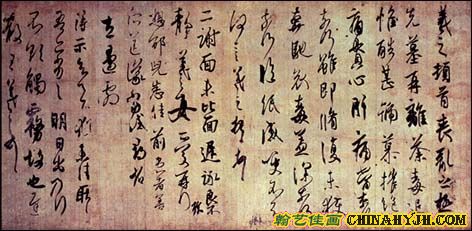 羲之頓首喪亂之極
先墓再離荼毒追
惟酷甚號慕摧絕
痛貫心肝痛當奈何
奈何雖即脩復未獲
奔馳哀毒益深奈何
奈何臨紙感哽不知
何言羲之頓首頓首
二謝面未比面遲詠良不
靜羲之女愛再拜想
邰兒悉佳前患者善
所送議當試尋省
左邊劇
得示知足下猶未佳耿耿
吾亦劣劣明日出乃行
不欲觸霧故也遲
散王羲之頓首
翰艺佳画 CHINAHYJH.COM